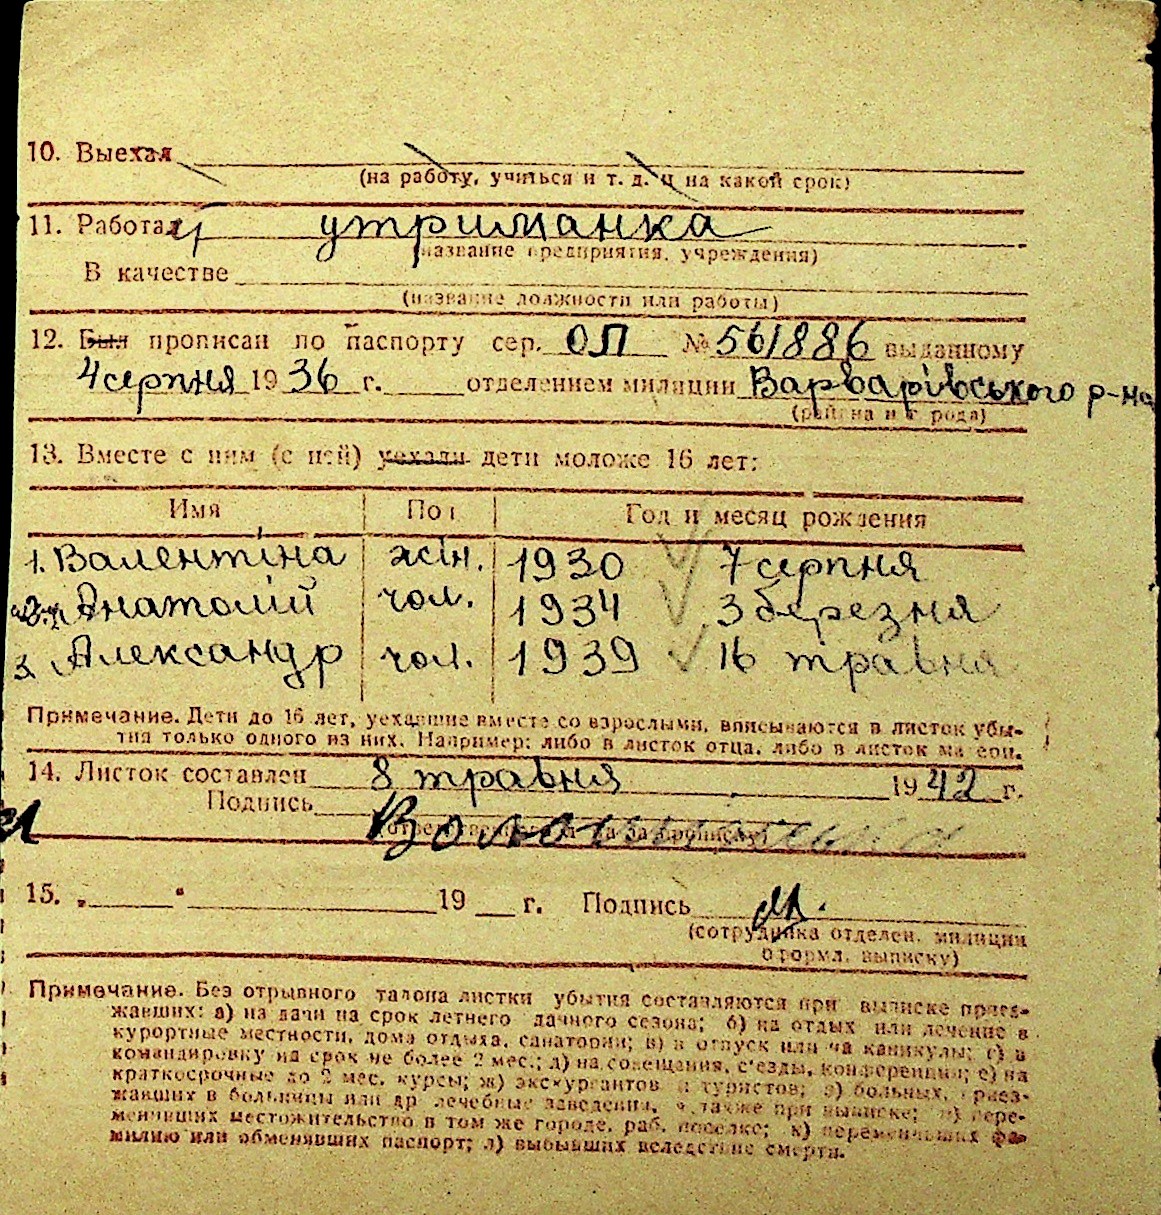 10. Выехал
(на работу, учиться и т. д. и на какой срок)
11. Работал утриманка
(название предприятия, учреждения)
В качестве
(название должности или работы)
12. Был прописан по паспорту сер. ОЛ № 561886 выданному
4 серпня 1936 г. отделением милиции Варварівського р-на
(района и города)
13. Вместе с ним (с ней) уехали дети моложе 16 лет:
Имя Пол Год и месяц рождения
1. Валентіна жін. 1930 7 серпня
2. Анатолій чол. 1934 3 березня
3. Александр чол. 1939 16 травня
Примечание. Дети до 16 лет, уехавшие вместе со взрослыми, вписываются в листок убы-
тия только одного из них. Например: либо в листок отца, либо в листок матери.
14. Листок составлен 8 травня 1942 г.
Подпись
15. „ " 19 г. Подпись
(сотрудника отделен. милиции
оформл. выписку)
Примечание. Без отрывного талона листки убытия составляются при выписке приез-
жавших: а) на дачи на срок летнего дачного сезона; б) на отдых или лечение в
курортные местности, дома отдыха, санатории; в) в отпуск или на каникулы; г) в
командировку на срок не более 2 мес.; д) на совещания, с'езды, конференции; е) на
краткосрочные до 2 мес. курсы; ж) экскурсантов и туристов; з) больных, приез-
жавших в больницы или др. лечебные заведения, а также при выписке; и) пере-
менивших местожительство в том же городе, раб. поселке; к) переменивших фа-
милию или обменявших паспорт; л) выбывших вследствие смерти.